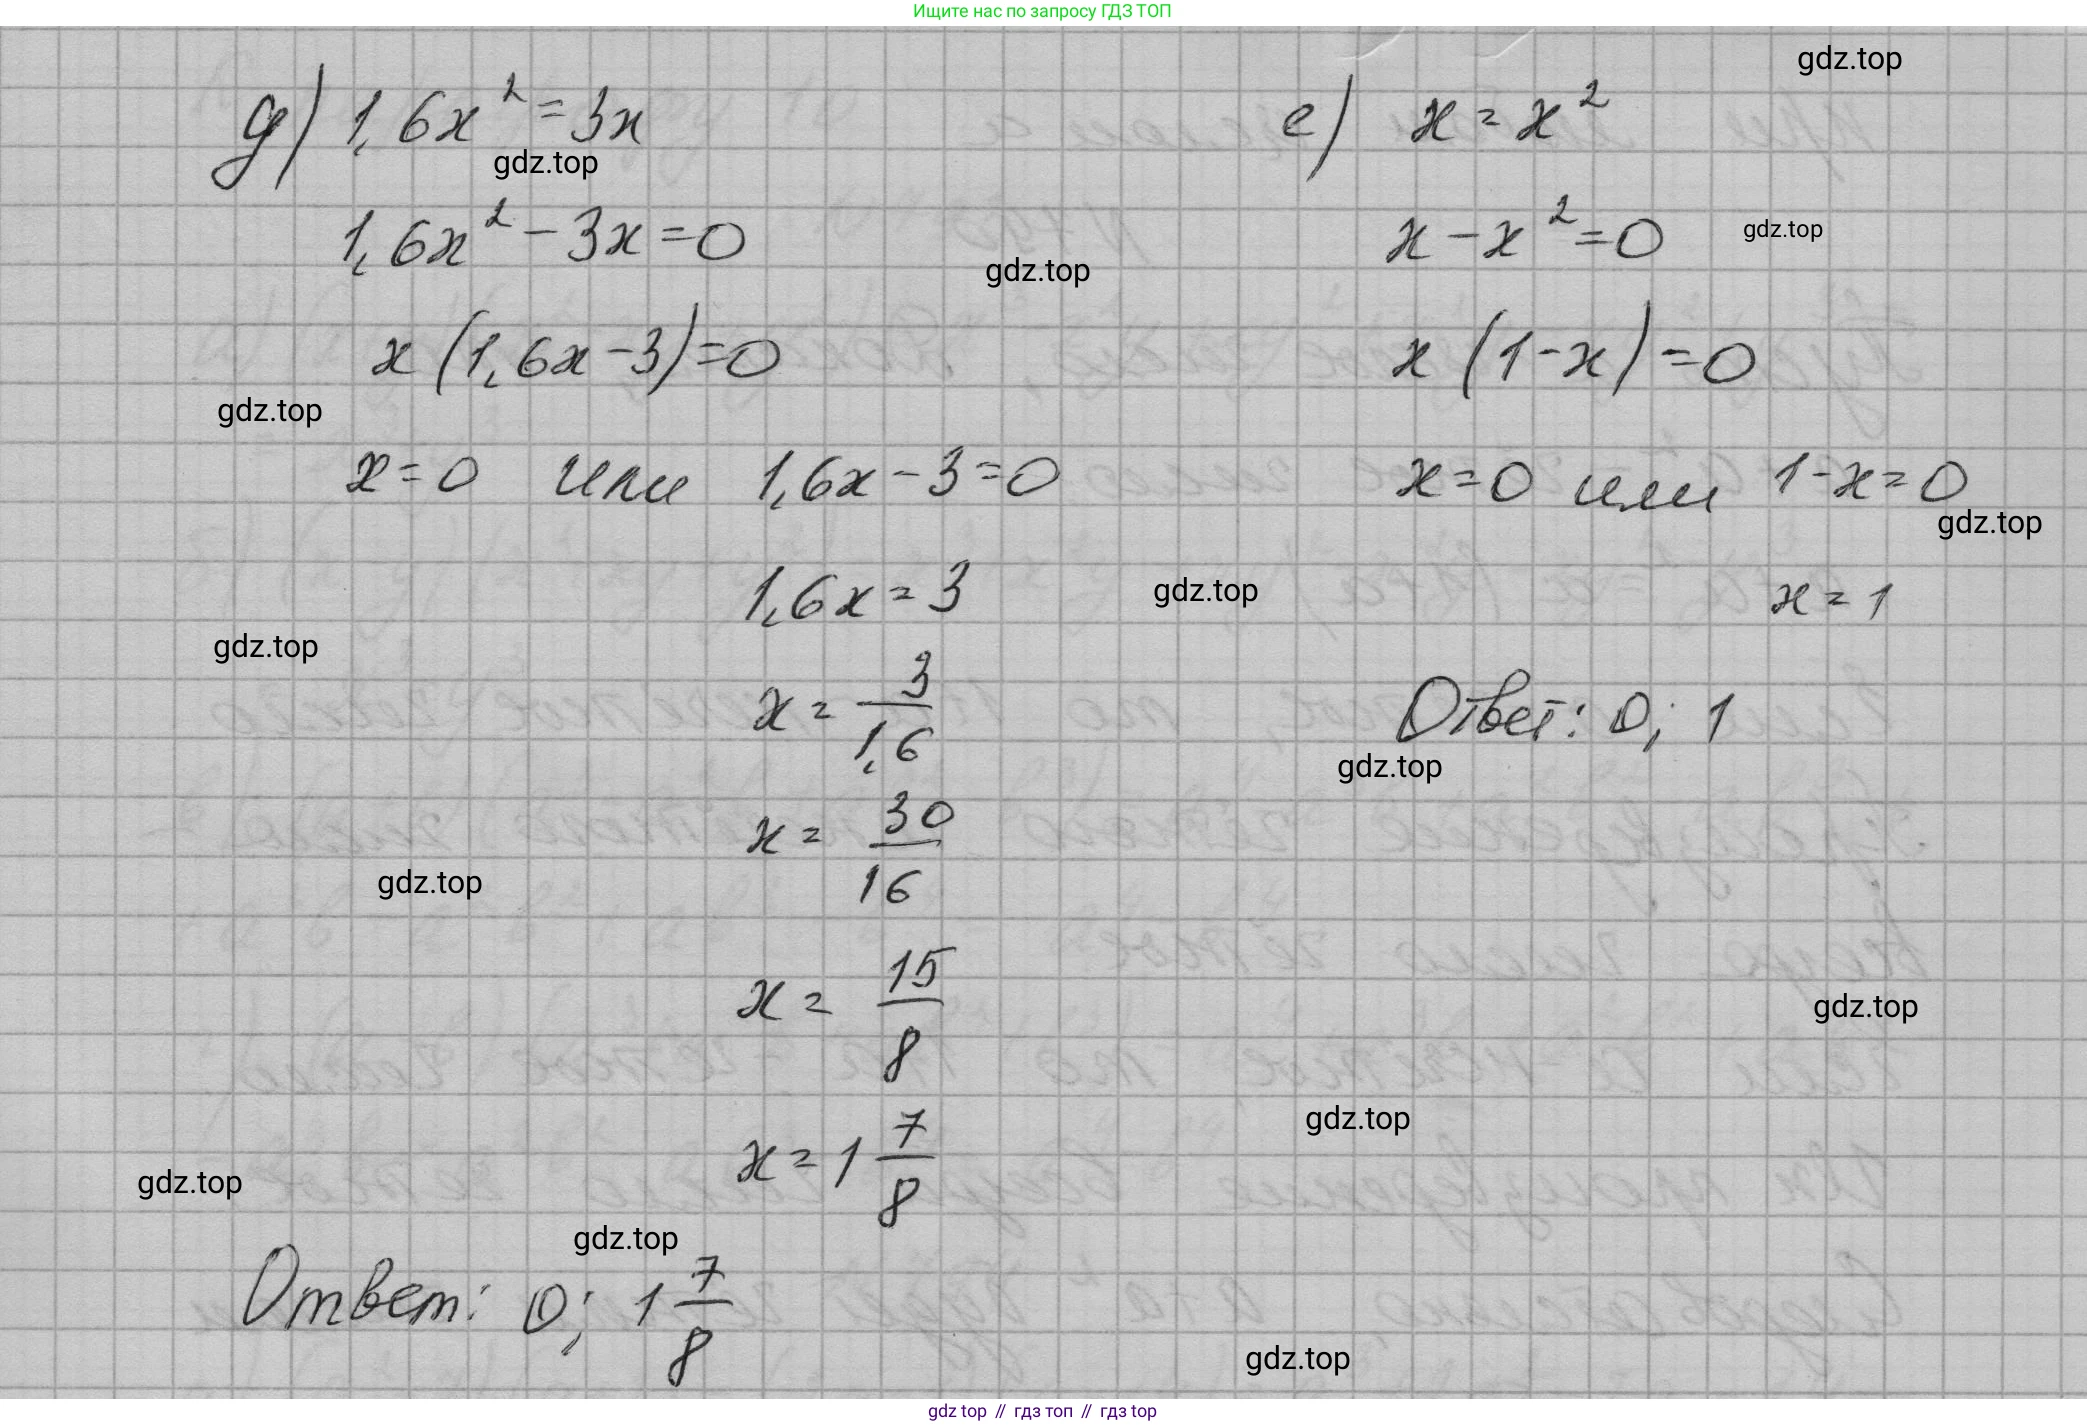 Ищите нас по запросу ГДЗ ТОП
gdz.top
д) 1,6x² = 3x
gdz.top
1,6x² - 3x = 0
gdz.top
x (1,6x - 3) = 0
gdz.top
x = 0 или 1,6x - 3 = 0
1,6x = 3
gdz.top
gdz.top
x = 3/1,6
x = 30/16
gdz.top
x = 15/8
x = 1 7/8
gdz.top
gdz.top
Ответ: 0; 1 7/8
е) x = x²
x - x² = 0
gdz.top
x (1 - x) = 0
x = 0 или 1 - x = 0
gdz.top
x = 1
Ответ: 0; 1
gdz.top
gdz.top
gdz.top
gdz.top
gdz top // гдз топ // гдз top